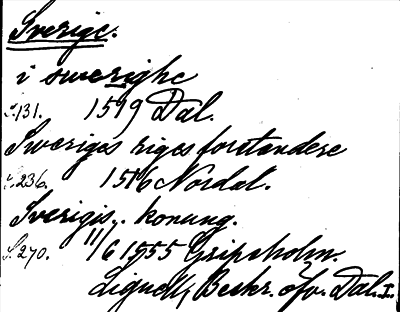 Sverige.
i swerighe
S. 131. 1519 Dal.
Sweriges riges forstandere
S. 236. 1516 Nordal.
Sverigis, konung.
S. 270. 11/6 1555 Gripsholm.
Lignell, Beskr. öfv. Dal. I.